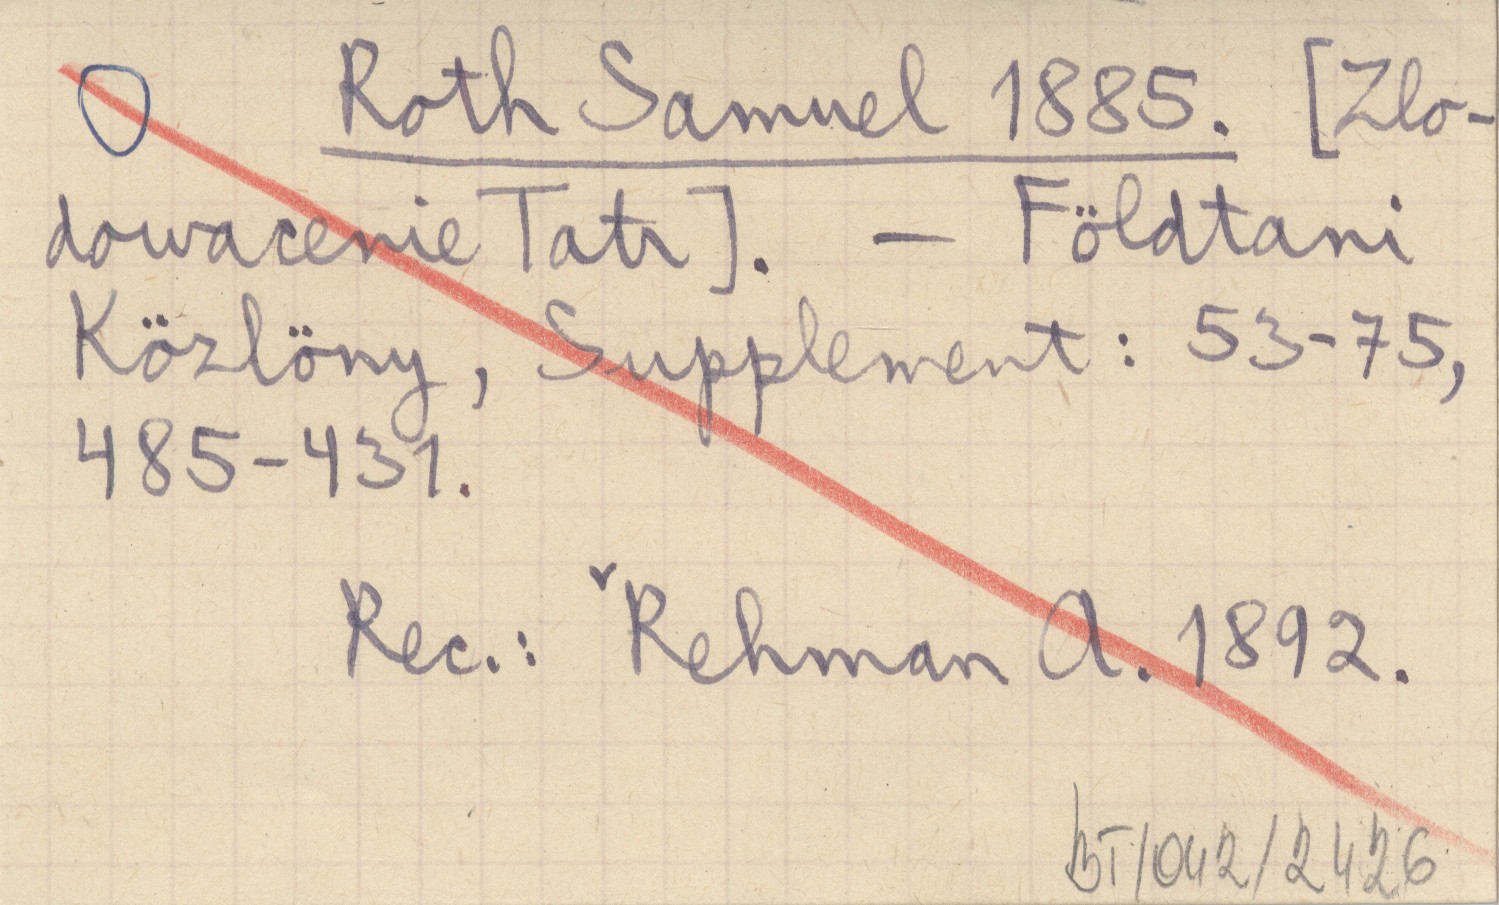 Roth Samuel 1885. [Zlo-
dowacenie Tatr]. — Földtani
Közlöny, Supplement: 53-75,
485-431.
Rec.: ˇRehman A. 1892.
BT/042/2426